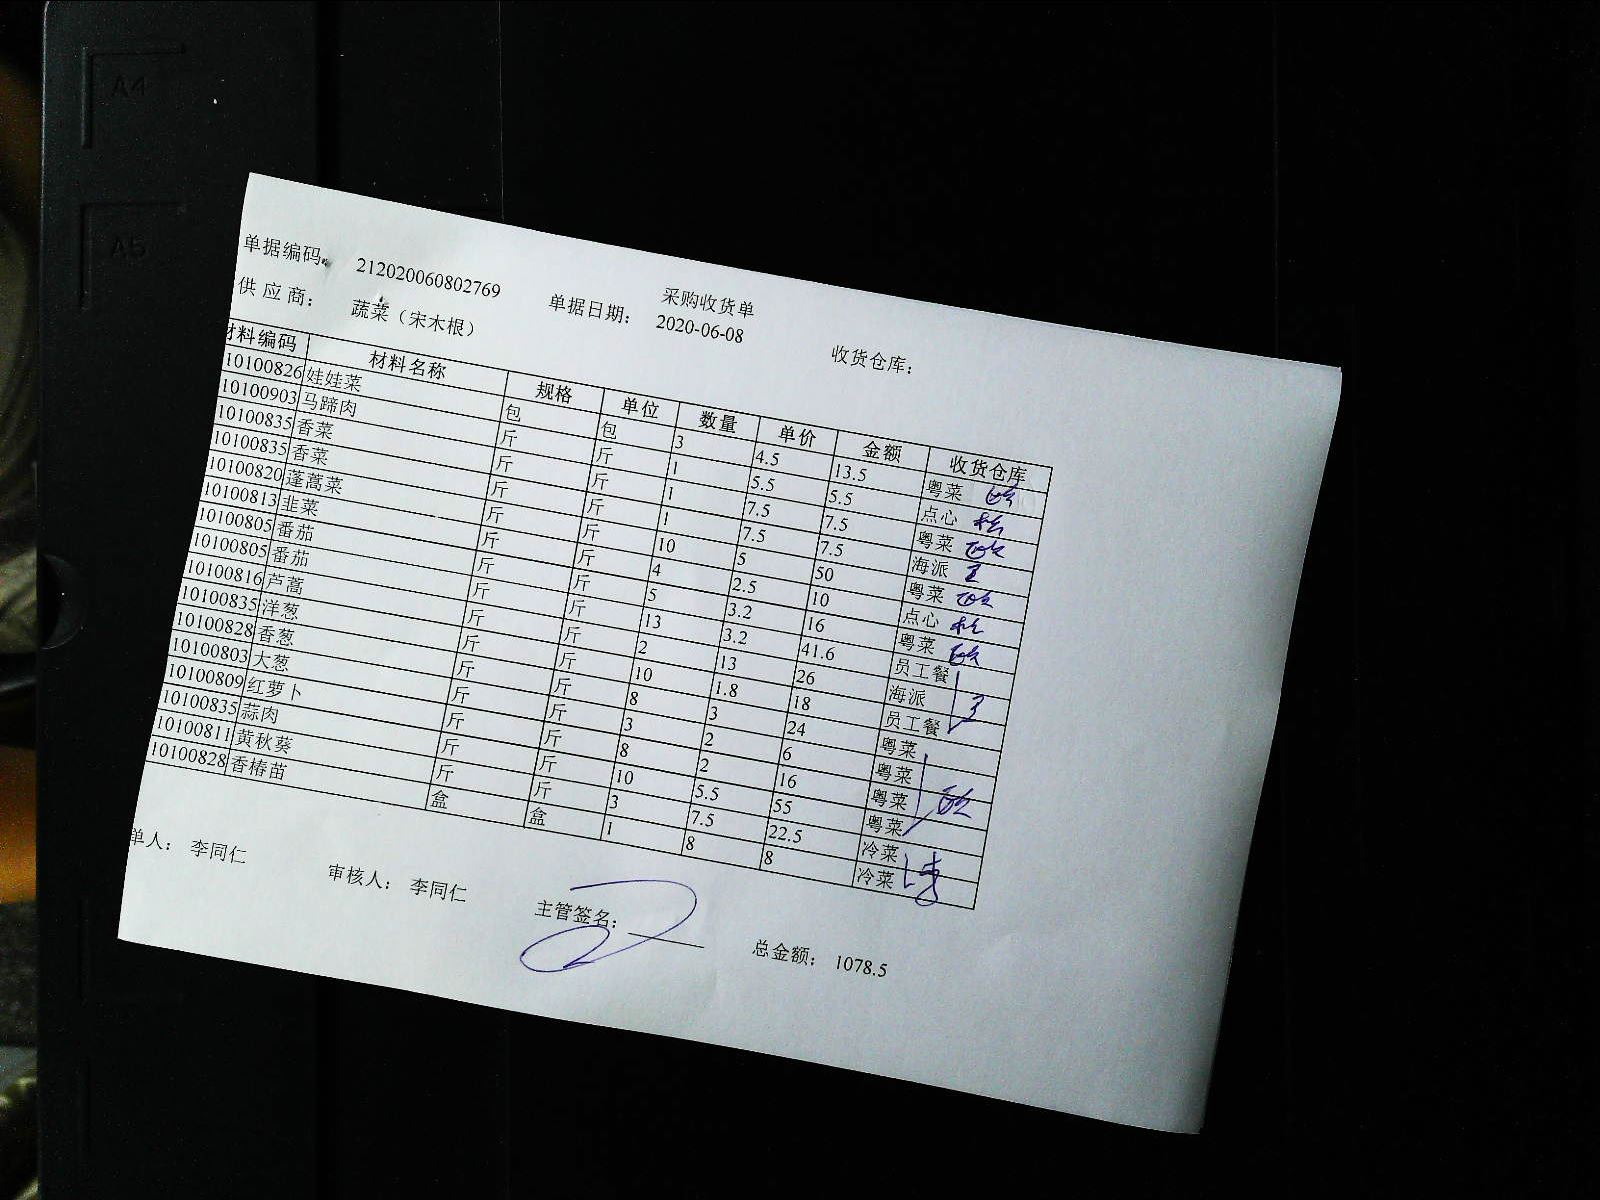 A4
A5
采购收货单
单据编码： 212020060802769 单据日期： 2020-06-08 收货仓库：
供应商： 蔬菜（宋木根）
材料编码 材料名称 规格 单位 数量 单价 金额 收货仓库
10100826 娃娃菜 包 包 3 4.5 13.5 粤菜
10100903 马蹄肉 斤 斤 1 5.5 5.5 点心
10100835 香菜 斤 斤 1 7.5 7.5 粤菜
10100835 香菜 斤 斤 1 7.5 7.5 海派
10100820 蓬蒿菜 斤 斤 10 5 50 粤菜
10100813 韭菜 斤 斤 4 2.5 10 点心
10100805 番茄 斤 斤 5 3.2 16 粤菜
10100805 番茄 斤 斤 13 3.2 41.6 员工餐
10100816 芦蒿 斤 斤 2 13 26 海派
10100835 洋葱 斤 斤 10 1.8 18 员工餐
10100828 香葱 斤 斤 8 3 24 粤菜
10100803 大葱 斤 斤 3 2 6 粤菜
10100809 红萝卜 斤 斤 8 2 16 粤菜
10100835 蒜肉 斤 斤 10 5.5 55 粤菜
10100811 黄秋葵 斤 斤 3 7.5 22.5 冷菜
10100828 香椿苗 盒 盒 1 8 8 冷菜
单人： 李同仁 审核人： 李同仁 主管签名： 总金额： 1078.5